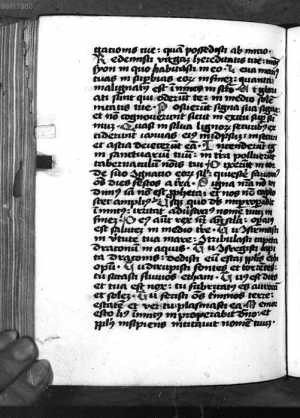 gationis tue: quam possedisti ab inicio.
Redemisti virgam hereditatis tue: mons
syon in quo habitasti in eo. Leua manus
tuas in supbias eorum in finem: quanta
malignatus est inimicus in scto. Et gloriati
sunt qui oderunt te: in medio sollemp
nitatis tue Posuerunt signa sua signa:
et non cognouerunt sicut in exitu sup sum
mum. Quasi in silua lignorum securibus ex
ciderunt ianuas eius in idipsum: in securi
et ascia deiecerunt eam. Incenderunt igni
sanctuarium tuum: in terra polluerunt
tabernaculum nois tui. Dixerunt in corde
suo cognatio eorum simul: quiescere faciamus
oes dies festos a terra. Signa nra non vi
dimus iam non est propheta: et nos non cognoscet
amplius. Usquequo deus improperabit
inimicus: irritat aduersarius nomen tuum in
finem.
deus aut rex noster ante secula: operatus
est salutem in medio terre. Tu confirmasti
in virtute tua mare: contribulasti capita
draconum in aquis. Tu confregisti capita
draconis: dedisti eum escam pplis ethi
opum. Tu dirupisti fontes et torrentes:
tu siccasti fluuios ethan. Tuus est dies
et tua est nox: tu fabricatus es auroram
et solem. Tu fecisti oes terminos terre:
estatem et ver tu plasmasti ea. Memor
esto huius inimicus improperauit dno: et
ppls insipiens incitauit nomen tuum.